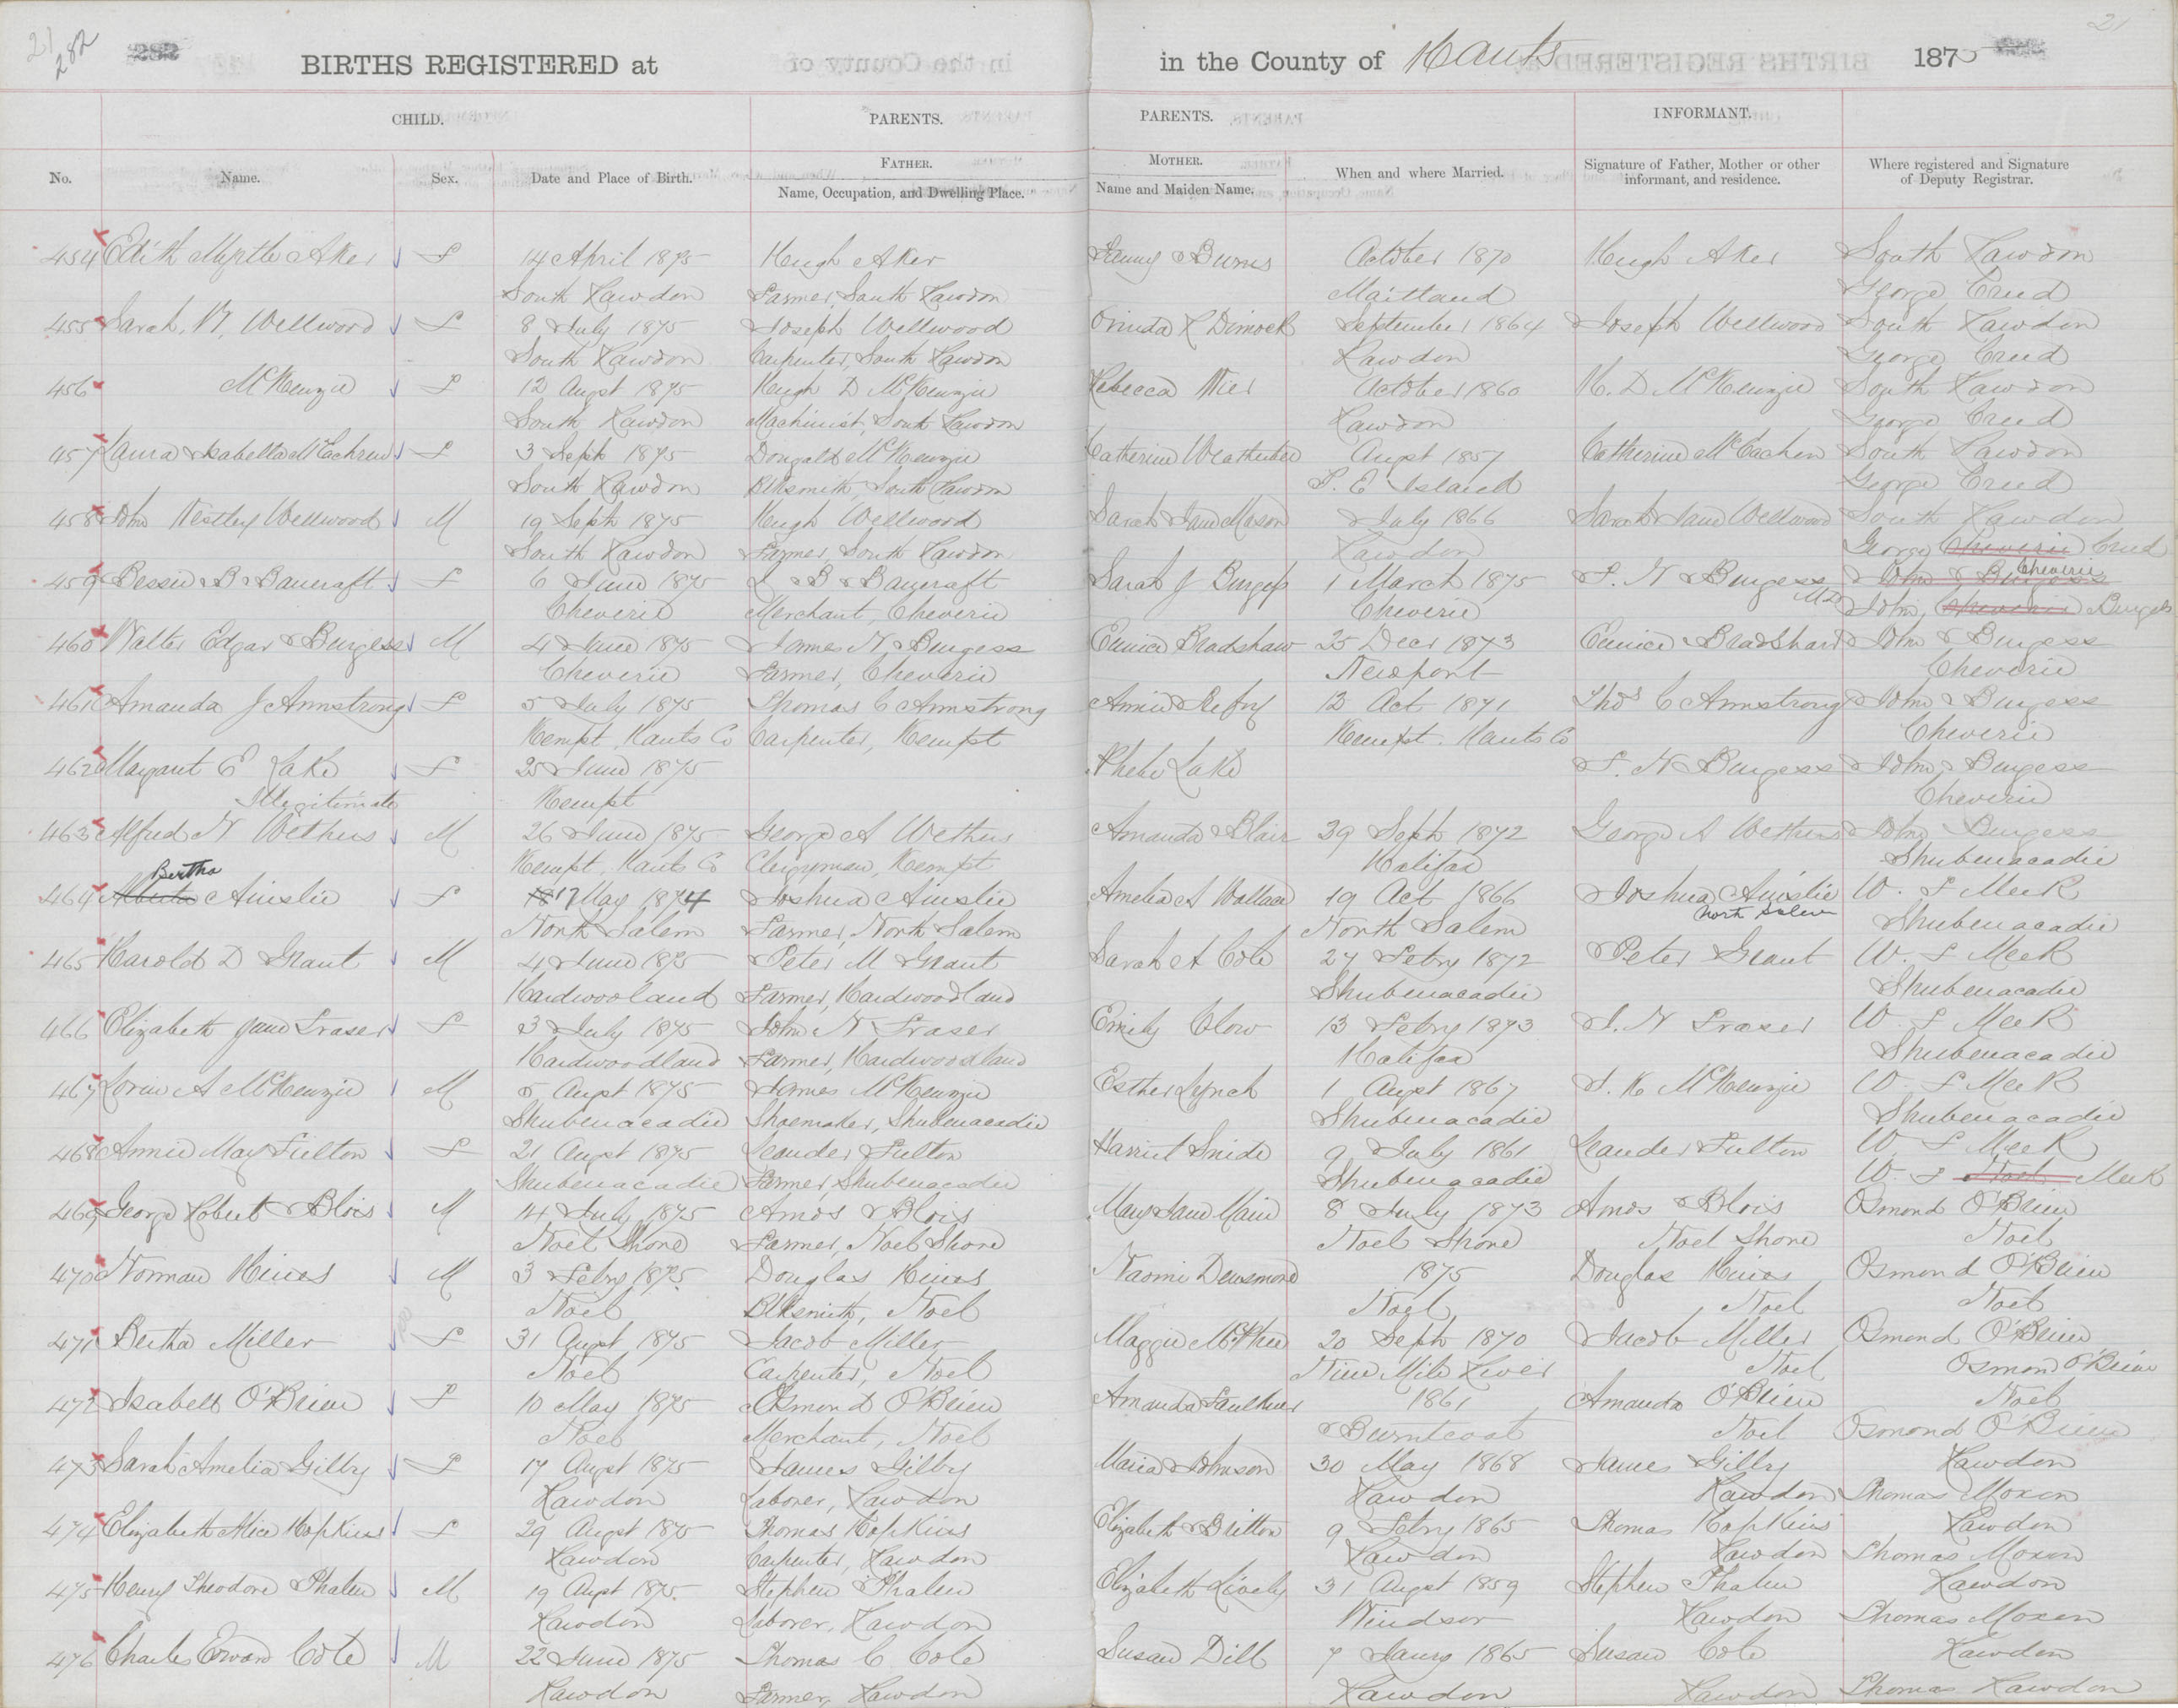 21 282 282 21
BIRTHS REGISTERED at in the County of Hants 1875
CHILD. PARENTS. PARENTS. INFORMANT.
No. Name. Sex. Date and Place of Birth. FATHER. Name, Occupation, and Dwelling Place. MOTHER. Name and Maiden Name. When and where Married. Signature of Father, Mother or other informant, and residence. Where registered and Signature of Deputy Registrar.
454 Edith Myrtle Aker F 14 April 1875 Hugh Aker Fanny Burns October 1870 Hugh Aker South Rawdon
South Rawdon Farmer, South Rawdon Maitland George Creed
455 Sarah. W. Wellwood F 8 July 1875 Joseph Wellwood R Dimock September 1864 Joseph Wellwood South Rawdon
South Rawdon Carpenter, South Rawdon Rawdon George Creed
456 McKenzie F 12 Augst 1875 Hugh D McKenzie Rebecca Wier October 1860 H. D McKenzie South Rawdon
South Rawdon Machinist, South Rawdon Rawdon George Creed
457 Laura Isabella McEachren F 3 Sept 1875 Dougald McKenzie Catherine Weatherbee Augst 1857 Catherine McEachen South Rawdon
South Rawdon Blksmith, South Rawdon P. E Island George Creed
458 John Westley Wellwood M 19 Sept 1875 Hugh Wellwood Sarah Jane Mason July 1866 Sarah Jane Wellwood South Rawdon
South Rawdon Farmer, South Rawdon Rawdon George Cheverie Creed
459 Bessie B Bancraft F 6 June 1875 B Bancraft Sarah J Burgess 1 March 1875 S. N Burgess MD John Burgess Cheverie
Cheverie Merchant, Cheverie Cheverie John, Cheverie Burgess
460 Walter Edgar Burgess M 4 June 1875 James N Burgess Eunice Bradshaw 25 Decr 1873 Eunice Bradshaw John Burgess
Cheverie Farmer, Cheverie Newport Cheverie
461 Amanda J Armstrong F 5 July 1875 Thomas C Armstrong Annie 12 Oct 1871 Thos C Armstrong John Burgess
Kempt, Hants Co Carpenter, Kempt Kempt. Hants Co Cheverie
462 Margant E Lake F 25 June 1875 Phebe Lake S. N Burgess John Burgess
Illegitimate Kempt Cheverie
463 Alfred N Wethers M 26 June 1875 George A Wethers Amanda Blair 39 Sept 1872 George A Wethers John Burgess
Kempt, Hants Co Clergyman, Kempt Halifax Shubenacadie
Bertha
464 Alberta Ainslie F 18 17 May 1874 Joshua Ainslie Amelia A Wallace 19 Oct 1866 Joshua Ainslie W. S Meek
North Salem Farmer, North Salem North Salem North Salem Shubenacadie
465 Harold D Grant M 4 June 1875 Peter M Grant Sarah A Cole 27 Febry 1872 Peter Grant W. S Meek
Hardwooland Farmer, Hardwoodland Shubenacadie Shubenacadie
466 Elizabeth Jane Fraser F 3 July 1875 John N Fraser Emily Clow 13 Febry 1873 J. N Fraser W. S Meek
Hardwoodland Farmer, Hardwoodland Halifax Shubenacadie
467 Lorin A McKenzie M 5 Augst 1875 James McKenzie Esther Lynch 1 Augst 1867 J. K McKenzie W. S Meek
Shubenacadie Shoemaker, Shubenacadie Shubenacadie Shubenacadie
468 Annie May Fulton F 21 Augst 1875 Leander Fulton Harriet Snide 9 July 1861 Leander Fulton W. S Meek
Shubenacadie Farmer, Shubenacadie Shubenacadie W. S Noel Meek
469 George Robert Blois M 14 July 1875 Amos Blois Mary Jane Main 8 July 1873 Amos Blois Osmond O'Brien
Noel Shore Farmer, Noel Shore Noel Shore Noel Shore Noel
470 Norman Hines M 3 Febry 1875 Douglas Hines Naomi Densmond 1875 Douglas Hines Osmond O'Brien
Noel Blksmith, Noel Noel Noel Noel
471 Bertha Miller F 31 Augst 1875 Jacob Miller Maggie McPhee 20 Sept 1870 Jacob Miller Osmond O'Brien
Noel Carpenter, Noel Nine Mile River Noel Osmond O'Brien
472 Isabell O'Brien F 10 May 1875 Osmond O'Brien Amanda Faulkner 1861 Amanda O'Brien Noel
Noel Merchant, Noel Burntcoat Noel Osmond O'Brien
473 Sarah Amelia Gilby F 17 Augst 1875 James Gilby Maria Johnson 30 May 1868 James Gilby Rawdon
Rawdon Laborer, Rawdon Rawdon Rawdon Thomas Moxon
474 Elizabeth Alice Hopkins F 29 Augst 1875 Thomas Hopkins Elizabeth Britton 9 Febry 1865 Thomas Hopkins Rawdon
Rawdon Carpenter, Rawdon Rawdon Rawdon Thomas Moxon
475 Henry Theodore Phalen M 19 Augst 1875 Stephen Phalen Elizabeth Lively 31 Augst 1859 Stephen Phalen Rawdon
Rawdon Laborer, Rawdon Windsor Rawdon Thomas Moxon
476 Charles Edward Cole M 22 June 1875 Thomas C Cole Susan Dill 7 Jany 1865 Susan Cole Rawdon
Rawdon Farmer, Rawdon Rawdon Rawdon Thomas Rawdon